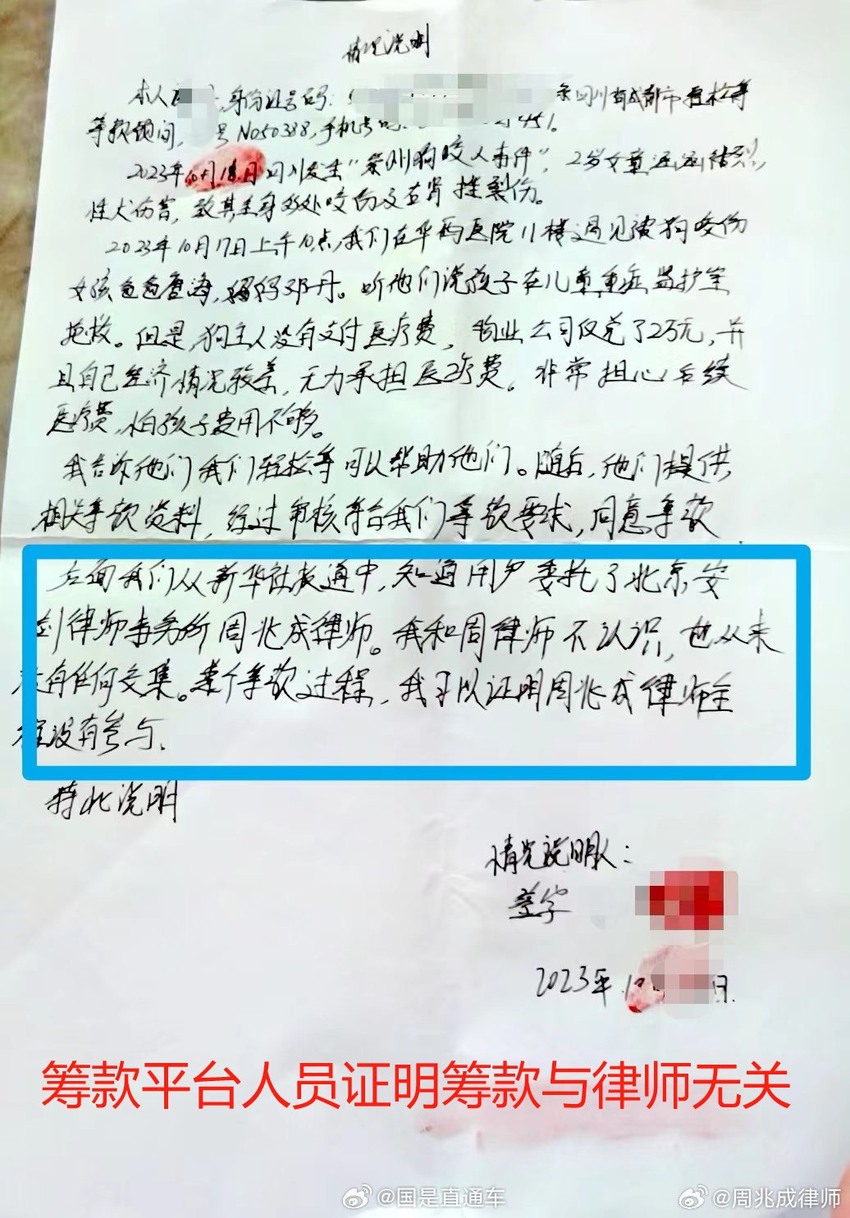 情况说明
本人 身份证号码: 系四川省成都市轻松筹
筹款顾问, 号No50338,手机号码 451。
2023年10月16日四川发生“崇州狗咬人事件”, 2岁女童遭遇烈
性犬伤害, 致其全身多处咬伤及右肾挫裂伤。
2023年10月17日上午10点,我们在华西医院儿楼遇见被狗咬伤
女孩爸爸 ,妈妈邓丹。听他们说孩子在儿童重症监护室
抢救。但是,狗主人没有支付医疗费, 物业公司仅 了2万元,并
且自己经济情况较差,无力承担医疗费。非常担心后续
医疗费,怕孩子费用不够。
我告诉他们我们轻松筹可以帮助他们。随后,他们提供
相关筹款资料,经过审核符合我们筹款要求,同意筹款.
后面我们从新华社报道中,知道用户委托了北京安
剑律师事务所周兆成律师。我和周律师不认识,也从来
没有任何交集。整个筹款过程,我可以证明周兆成律师全
程没有参与.
特此说明
情况说明人:
签字
2023年10 日.
筹款平台人员证明筹款与律师无关
@国是直通车 @周兆成律师